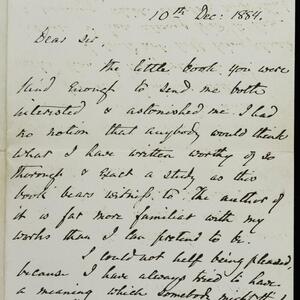 10th Dec: 1884.
Dear Sir.
The little book you were
kind enough to send me both
interested & astonished me. I had
no notion that anybody would think
what I have written worthy of so
thorough & exact a study as this
book bears witness to. The author of
it is far more familiar with my
works than I can pretend to be.
I could not help being pleased,
because I have always tried to have
a meaning which somebody might